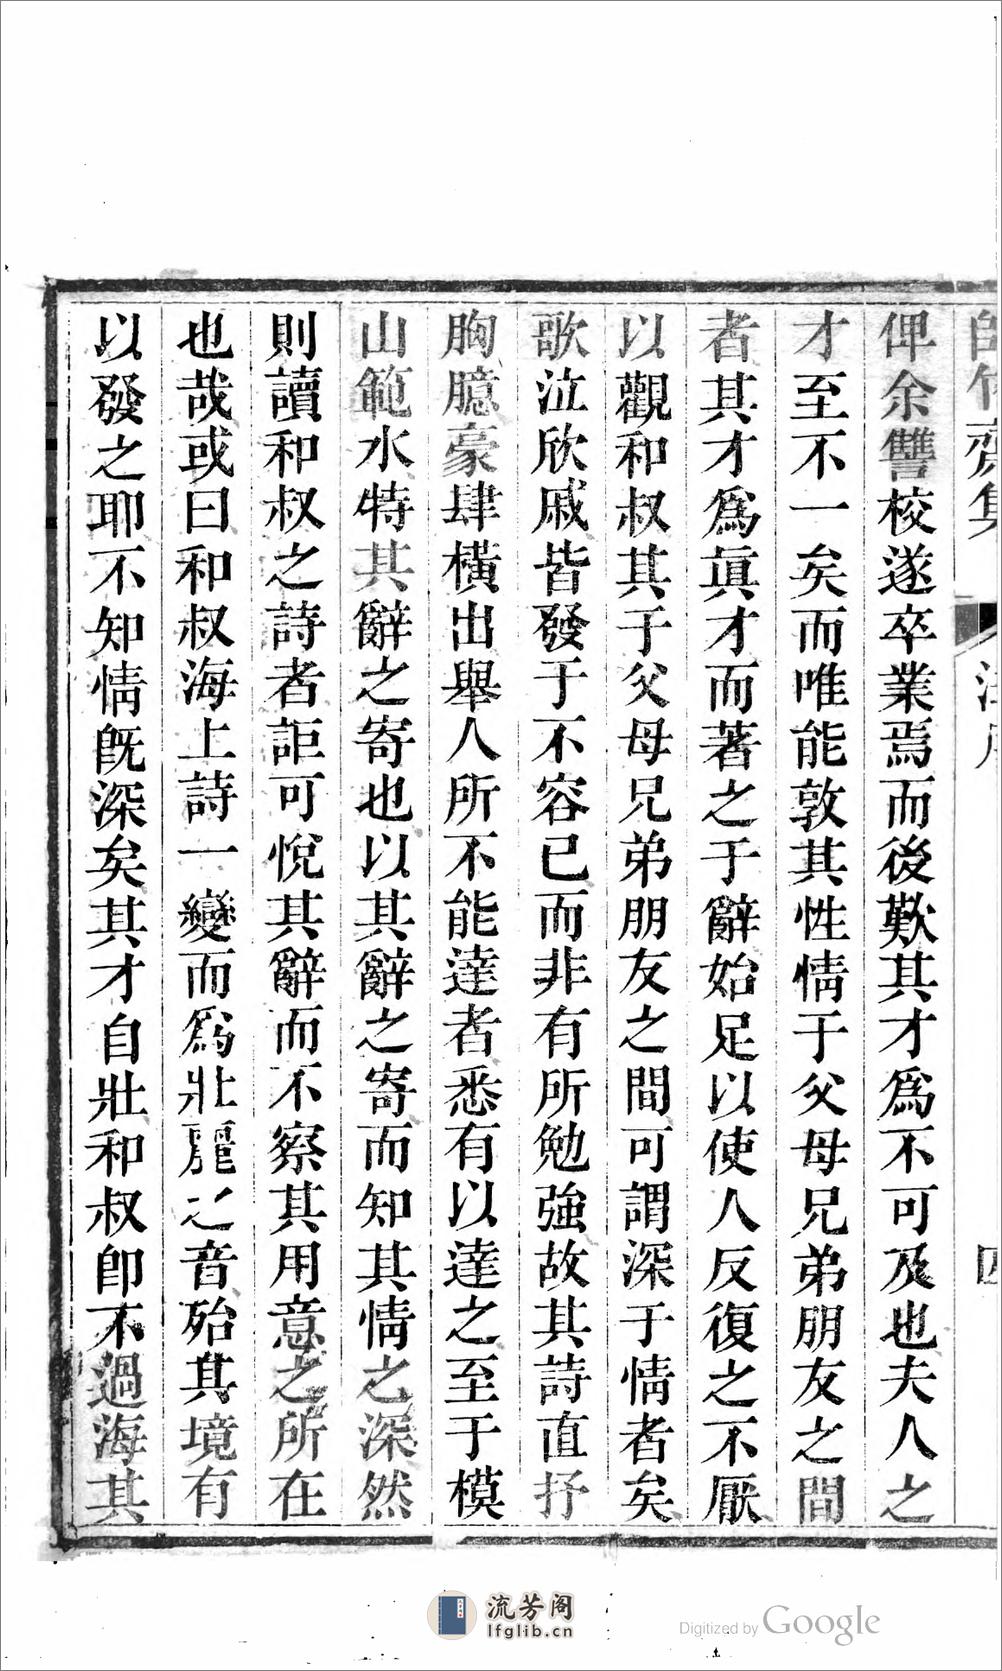 師竹齋集
四
俾余讐校遂卒業焉而後歎其才爲不可及也夫人之
才至不一矣而唯能敦其性情于父母兄弟朋友之間
者其才爲眞才而著之于辭始足以使人反復之不厭
以觀和叔其于父母兄弟朋友之間可謂深于情者矣
歌泣欣戚皆發于不容已而非有所勉強故其詩直抒
胸臆豪肆橫出舉人所不能達者悉有以達之至于模
山範水特其辭之寄也以其辭之寄而知其情之深然
則讀和叔之詩者詎可悅其辭而不察其用意之所在
也哉或曰和叔海上詩一變而爲壯麗之音殆其境有
以發之耶不知情旣深矣其才自壯和叔卽不過海其
流芳阁
lfglib.cn
Digitized by Google